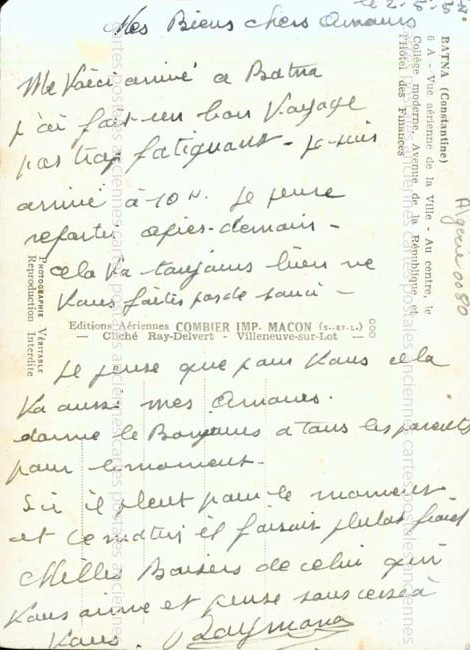 le 2-5-5
Mes Biens chers Amours
Me Voici arrivé a Batna
j'ai fait un bon Voyage
pas trop fatiguant - je suis
arrivé à 10 H. Je pense
repartir après-demain -
cela Va toujours bien ne
Vous faites pas de souci -
Je pense que pour Vous cela
Va aussi mes Amours.
donne le Bonjours a Tous les parents
pour le moment -
Ici il pleut pour le moment
et ce matin il faisait plutot froid
Milles Baisers de celui qui
Vous aime et pense sans cesse à
Vous. Raymond
BATNA (Constantine)
6 A - Vue aérienne de la Ville - Au centre, le
Collège moderne, Avenue de la République et
l'Hôtel des Finances
Algerie 0080
PHOTOGRAPHIE VÉRITABLE
Reproduction Interdite
Editions Aériennes COMBIER IMP. MACON (S.-ET-L.)
— Cliché Ray-Delvert - Villeneuve-sur-Lot —
cartes postales anciennes cartes postales anciennes cartes postales anciennes